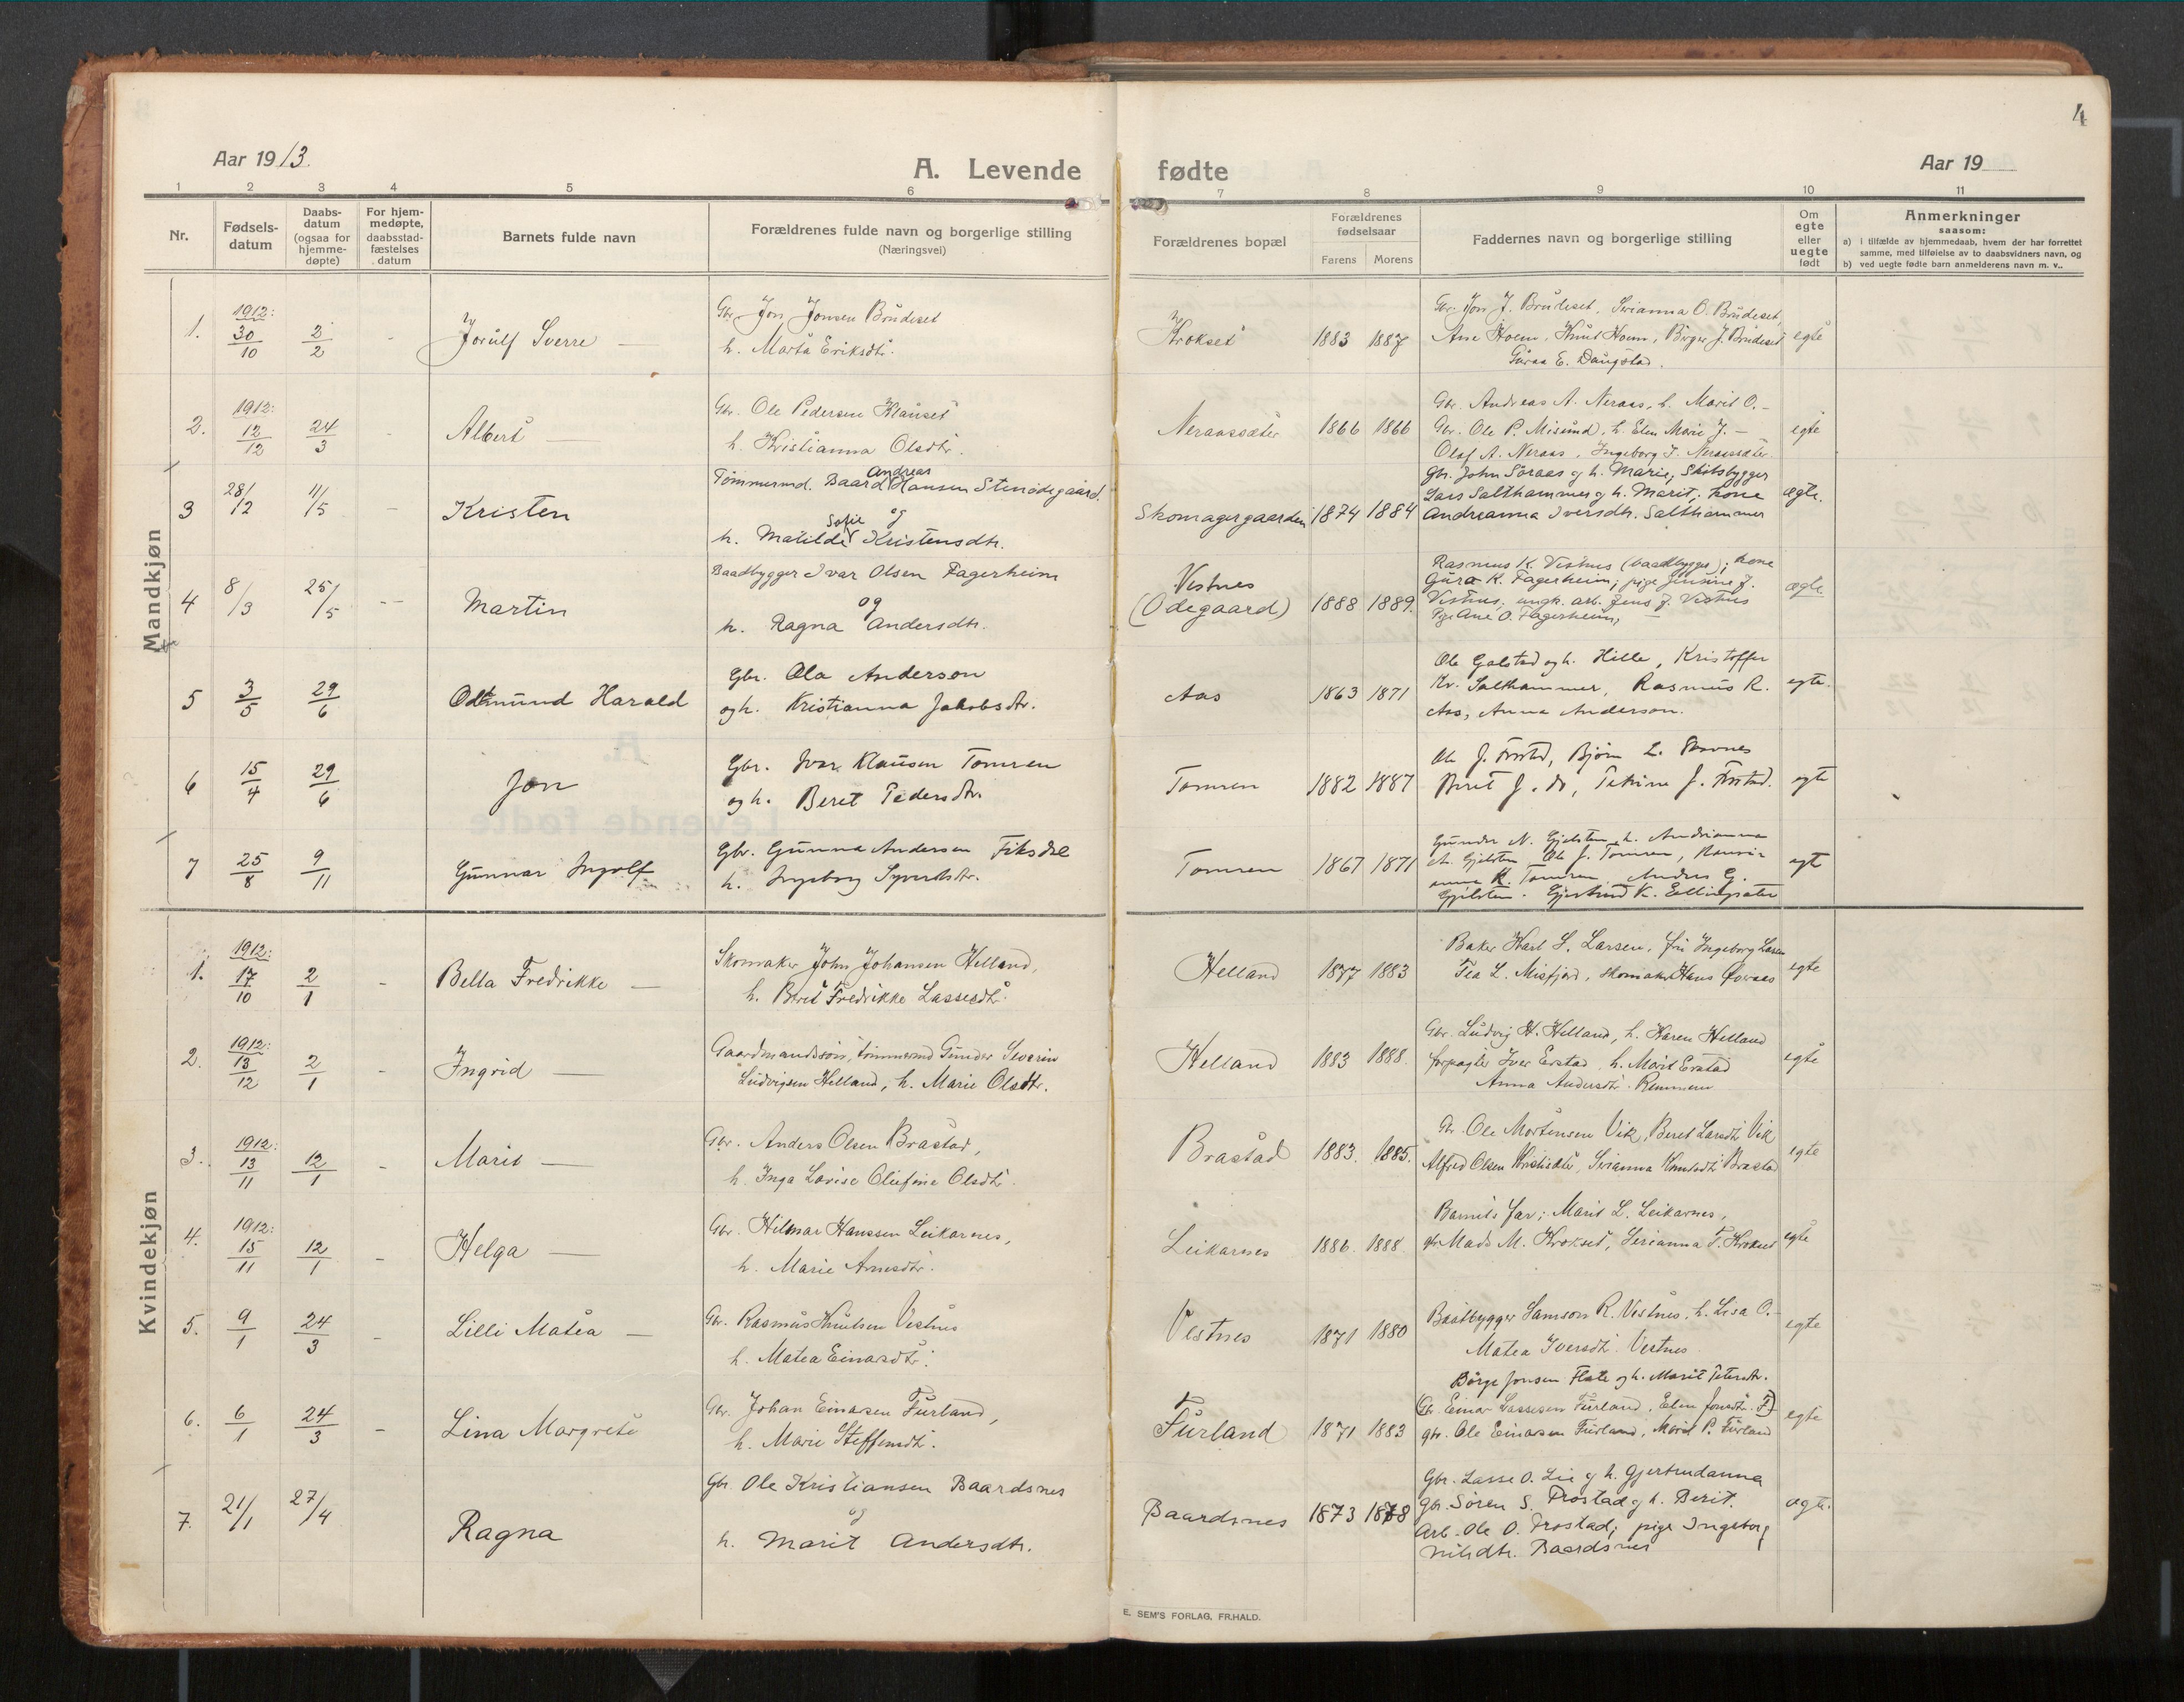 4
Aar 1913.
A. Levende fødte
Aar 19
1 2 3 4 5 6 7 8 9 10 11
Nr.
Fødsels-
datum
Daabs-
datum
(ogsaa for
hjemme-
døpte)
For hjem-
medøpte,
daabsstad-
fæstelses
datum
Barnets fulde navn
Forældrenes fulde navn og borgerlige stilling
(Næringsvei)
Forældrenes bopæl
Forældrenes
fødselsaar
Farens Morens
Faddernes navn og borgerlige stilling
Om
egte
eller
uegte
født
Anmerkninger
saasom:
a) i tilfælde av hjemmedaab, hvem der har forrettet
samme, med tilføielse av to daabsvidners navn, og
b) ved uegte fødte barn anmelderens navn m. v..
Mandkjøn
1. 1912: 30/10 2/2 - Jorulf Sverre —
Gbr. Jon Jonsen Brudeset
h. Marta Eriksdtr.
Krokset 1883 1887
Gbr. Jon J. Brudeset, Serianna O. Brudeset,
Ane Hoem, Knut Hoem, Birger J. Brudeset
Guroa E. Daugstad.
egte
2. 1912: 12/12 24/3 - Albert —
Gbr. Ole Pedersen Klauset
h. Kristianna Olsdtr.
Neraassæter 1866 1866
Gbr. Andreas A. Neraas, h. Marit O. -
Gbr. Ole P. Misund, h. Elen Marie J. -
Olaf A. Neraas, Ingeborg J. Neraassæter.
egte
3 28/12 11/5 - Kristen
Tømmermd. Baard Andreas Hansen Stenødegaard.
og
h. Matilde Sofie Kristensdtr.
Skomagergaarden 1874 1884
Gbr. John Soraas og h. Marie, Skibsbygger
Lars Salthammer og h. Marit; kone
Andreanna Iversdtr. Salthammer
ægte.
4 8/3 25/5 -- Martin
Baadbygger Ivar Olsen Fagerheim
og
h. Ragna Andersdtr.
Vestnes
(Ødegaard) 1888 1889.
Rasmus K. Vestnes (baadbygger); kone
Gura K. Fagerheim; pige J.
Vestnes, ungk. arb. Jens J. Vestnes
Pige Ane O. Fagerheim,
ægte
5 3/5 29/6 Odmund Harald
Gbr. Ola Anderson
og h. Kristianna Jakobsdtr.
Aas 1863 1871
Ole Galstad og h. Hille, Kristoffer
Kr. Salthammer, Rasmus R.
Aas, Anna Anderson.
egte.
6 15/4 29/6 Jon
Gbr. Ivar Klausen Tomren
og h. Beret Pedersdtr.
Tomren 1882 1887
Ole J. , Bjørn L.
Beret J. do, J.
egte
7 25/8 9/11 Gunnar Ingolf
Gbr. Gunnar Andersen Fiksdal
h. Ingeborg Syvertsdtr.
Tomren 1867 1871
Gunder N. Gjelsten, h. Andrianna
A. Gjelsten, Ole J. Tomren,
K. Tomren, Anders G.
Gjelsten. Gjertrud K. Ellingsæter
egte
Kvindekjøn
1. 1912: 17/10 2/1 - Bella Fredrikke —
Skomaker John Johansen Helland,
h. Beret Fredrikke Lassesdtr.
Helland 1877 1883
Baker Karl S. Larsen, fru Ingeborg Larsen
Tea L. Misfjord, skomaker Hans
egte
2. 1912: 13/12 2/1 - Ingrid —
Gaardmandssøn, tømmermd Gunder Severin
Ludvigsen Helland, h. Marie Olsdtr.
Helland 1883 1888.
Gbr. Ludvig H. Helland, h. Karen Helland
forpagter Iver Erstad, h. Marit Erstad
Anna Andersdtr. Remmem
egte
3. 1912: 13/11 12/1 - Marit —
Gbr. Anders Olsen Brastad,
h. Inga Lovise Olufine Olsdtr.
Brastad 1883. 1885.
Gbr. Ole Mortensen Vik, Beret Larsdtr. Vik
Alfred Olsen , Serianna Knutsdtr. Brastad
egte
4. 1912: 15/11 12/1 - Helga —
Gbr. Hilmar Hanssen Leikarnes,
h. Marie Arnesdtr.
Leikarnes 1886. 1888.
Barnets far; Marit L. Leikarnes,
gbr. Mads M. Krokset, Serianna T. Krokset
egte
5. 9/1 24/3 - Lilli Matea —
Gbr. Rasmus Knutsen Vestnes
h. Matea Einarsdtr.
Vestnes 1871 1880
Baatbygger Samson R. Vestnes, h. Lisa O. -
Matea Iversdtr. Vestnes
egte
6. 6/1 24/3 - Lina Margrete
Gbr. Johan Einarsen Furland,
h. Marie Steffensdtr.
Furland 1871 1883
Børge Jonsen Flate og h. Marit Petersdtr.
(Gbr. Einar Lassesen Furland, Elen Jonsdtr. F.)
gbr. Ole Einarsen Furland, Marit P. Furland
egte
7. 21/1 27/4 Ragna
Gbr. Ole Kristiansen Baardsnes
og
h. Marit Andersdtr.
Baardsnes 1873 1878
Gbr. Lasse O. Lie og h. Gjertrudanna
Gbr. Søren S. Frostad og h. Berit.
Arb. Ole O. Frostad; pige Ingeborg
Nilsdtr. Baardsnes
ægte.
E. SEM'S FORLAG, FR.HALD.